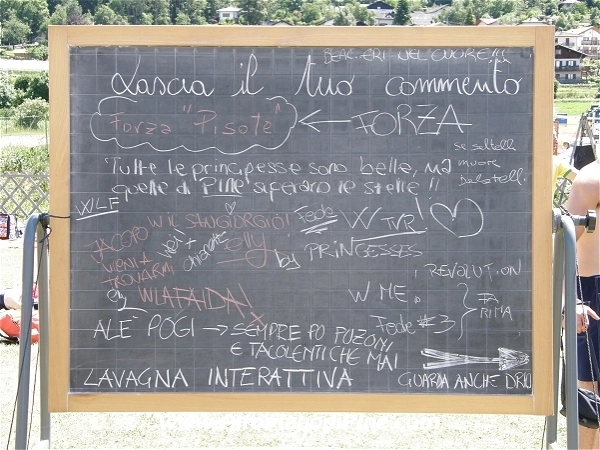 BEAC.ERI NEL CUORE!!!
Lascia il tuo commento
Forza "Pisote" ← FORZA
se saltelli
muore
Balotelli
Tutte le principesse sono belle, ma
quelle di PINE' superano le stelle !!
W LE
W IL SANGIORGIO!
Fede
W TVR!
JACOPO
VIENI A
TROVARMI
by PRINCESSES
REVOLUTION
W LA FAIDA!
W ME.
FA
RIMA
Fede #3
ALÈ POGI → SEMPRE PO POZONI
E TACOLENTI CHE MAI
LAVAGNA INTERATTIVA
GUARDA ANCHE DRIO